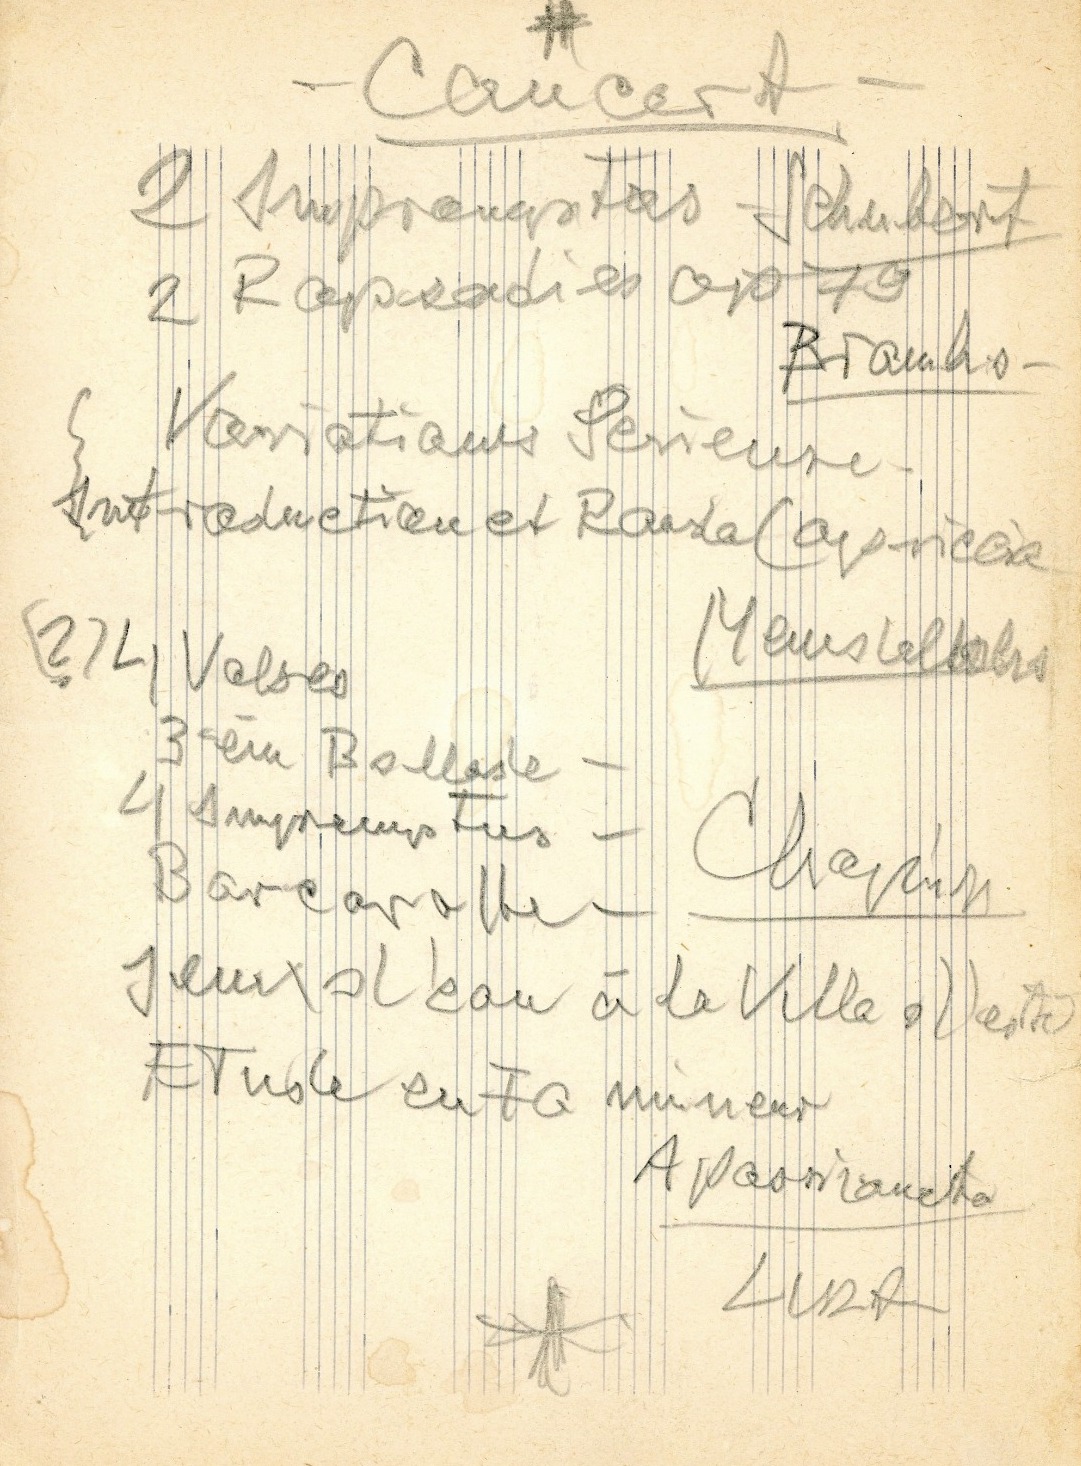 - Concert -
2 Impromptus - Schubert
2 Rapsodies op 79
Bramhs -
Variations Serieuse -
Introduction et Rondo Capriccio
Mendelssohn
(2) 4 Valses
3-ém Ballade -
4 Impromptus -
Chopin
Barcarolle -
Jeux d'eau à la Villa d'Este
Etude en Fa mineur
Apassionata